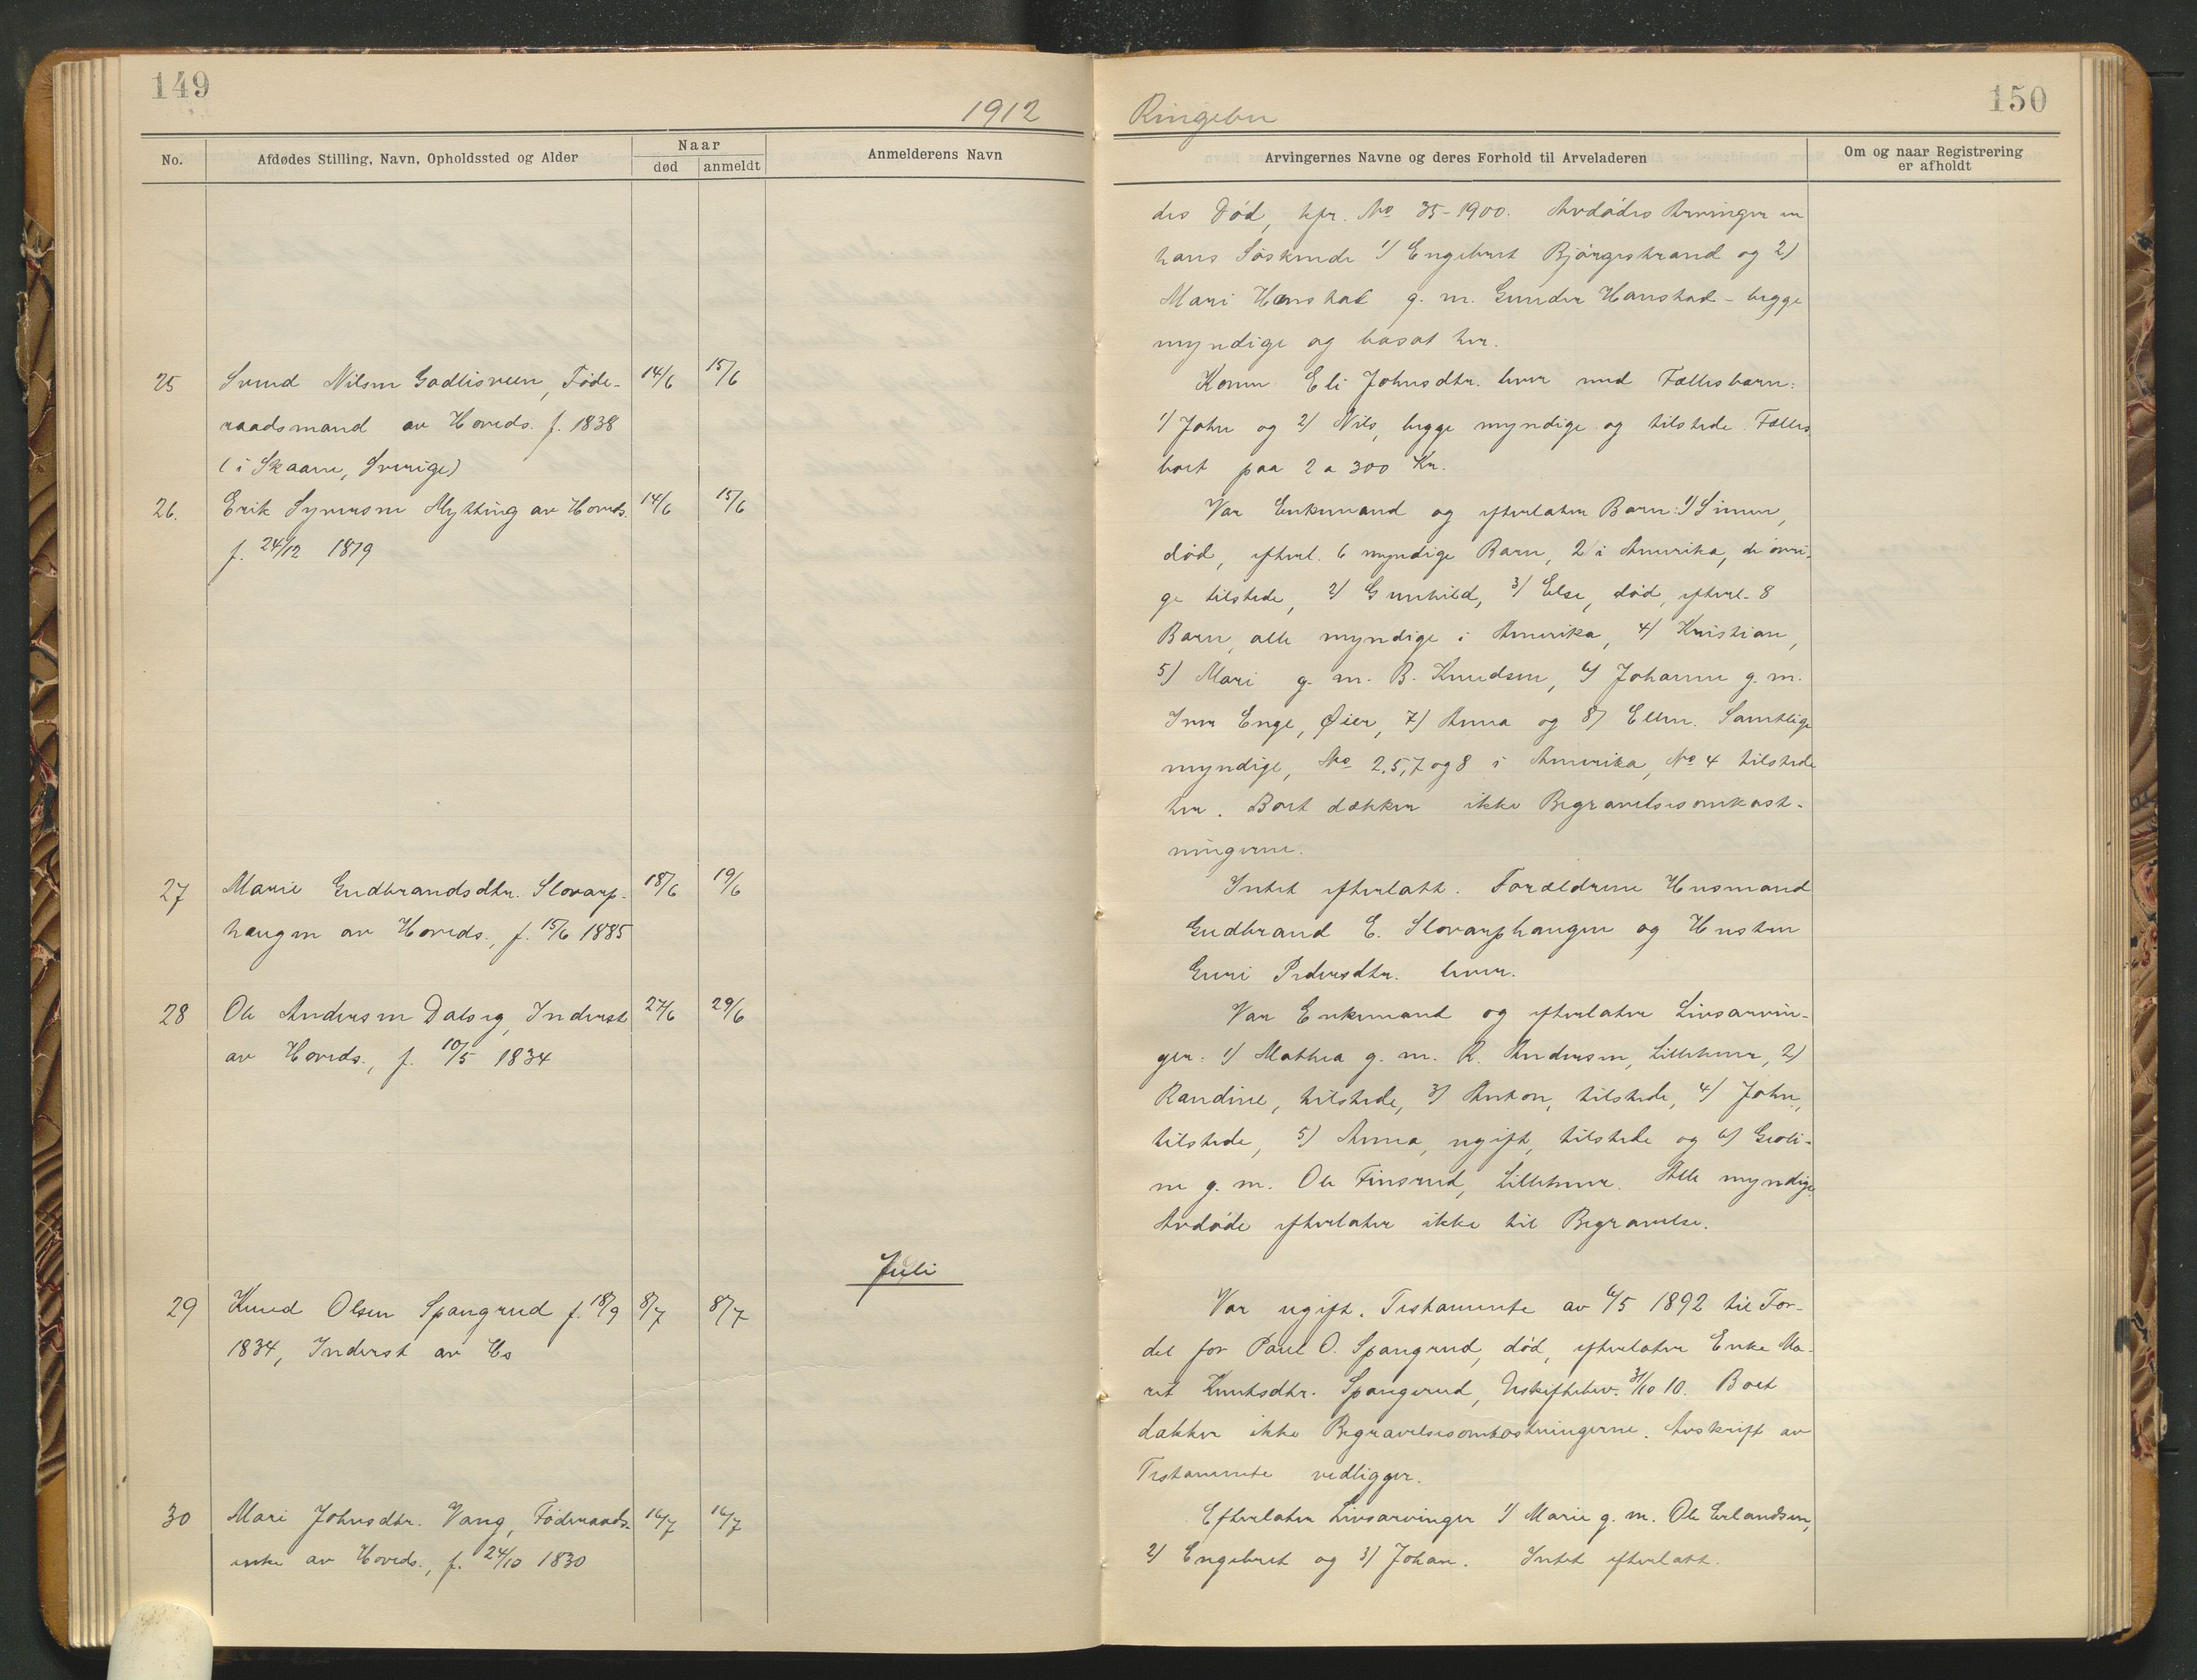 149
1912
No.
Afdødes Stilling, Navn, Opholdssted og Alder
Naar
død
anmeldt
Anmelderens Navn
25 Svend Nilsen Godlisveen, Føde- 14/6 15/6
raadsmand av Hoveds. f. 1838
(i Skaane, Sverige)
26. Erik Syversen Mytting av Hoveds. 14/6 15/6
f. 24/12 1819
27 Marie Gudbrandsdtr. Slovarp- 18/6 19/6
haugen av Hoveds., f. 15/6 1885
28 Ole Andersen Dalseg, Inderst 27/6 29/6
av Hoveds., f. 10/5 1834
Juli
29 Knud Olsen Spangrud f. 18/9 8/7 8/7
1834, Inderst av Hs
30 Mari Johnsdtr. Vang, Føderaads- 16/7 16/7
enke av Hoveds., f. 24/10 1830
Ringebu
150
Arvingernes Navne og deres Forhold til Arveladeren
Om og naar Registrering
er afholdt
des Død, kfr. No 35-1900. Avdødes Arvinger er
hans Søskende 1/ Engebret Bjørgestrand og 2/
Mari Hanstad g. m. Gunder Hanstad - begge
myndige og bosat her.
Konen Eli Johnsdtr. lever med Fællesbarn:
1/ John og 2/ Nils, begge myndige og tilstede. Fælles
boet paa 2 a 300 Kr.
Var Enkemand og efterlater Barn: 1/ Simen,
død, efterl. 6 myndige Barn, 2 i Amerika, de øvri-
ge tilstede, 2/ Gunhild, 3/ Else, død, efterl. 8
Barn, alle myndige i Amerika, 4/ Kristian,
5/ Mari g. m. B. Knudsen, 6/ Johanne g. m.
Iver Enge, Øier, 7/ Anna og 8/ Ellen. Samtlige
myndige, No 2, 5, 7 og 8 i Amerika, No 4 tilstede
her. Boet dækker ikke Begravelsesomkost-
ningerne.
Intet efterlatt. Forældrene Husmand
Gudbrand E. Slovarphaugen og Hustru
Guri Pedersdtr. lever.
Var Enkemand og efterlater Livsarvin-
ger: 1/ Mathea g. m. R. Andersen, Lillehmer, 2/
Randine, tilstede, 3/ Anton, tilstede, 4/ John,
tilstede, 5/ Anna, ugift, tilstede og 6/ Geoli-
ne g. m. Ole Finsrud, Lillehmer. Alle myndige.
Avdøde efterlater ikke til Begravelse.
Var ugift. Testamente av 6/5 1892 til For-
del for Paul O. Spangrud, død, efterlater Enke Ma-
rit Knutsdtr. Spangerud, Uskiftebev. 31/10 10. Boet
dækker ikke Begravelsesomkostningerne. Avskrift av
Testamente vedligger.
Efterlater Livsarvinger 1/ Marie g. m. Ole Erlandsen,
2/ Engebret og 3/ Johan. Intet efterlatt.